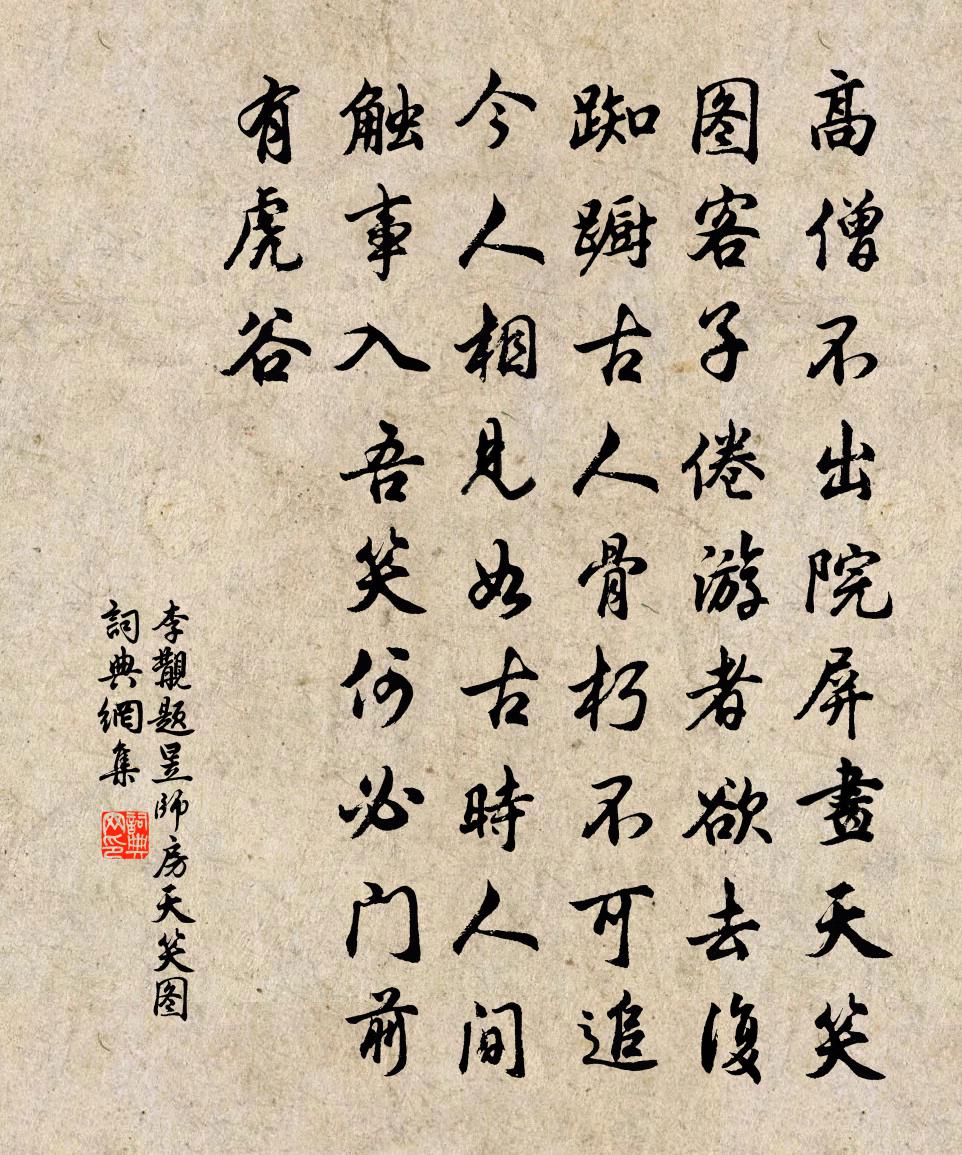 高僧不出院屏畫天笑
图客子倦游者欲去復
踟蹰古人骨朽不可追
今人相見如古時人间
触事入吾笑何必门前
有虎谷
李觏题昱師房天笑图
詞典網集
詞典网印